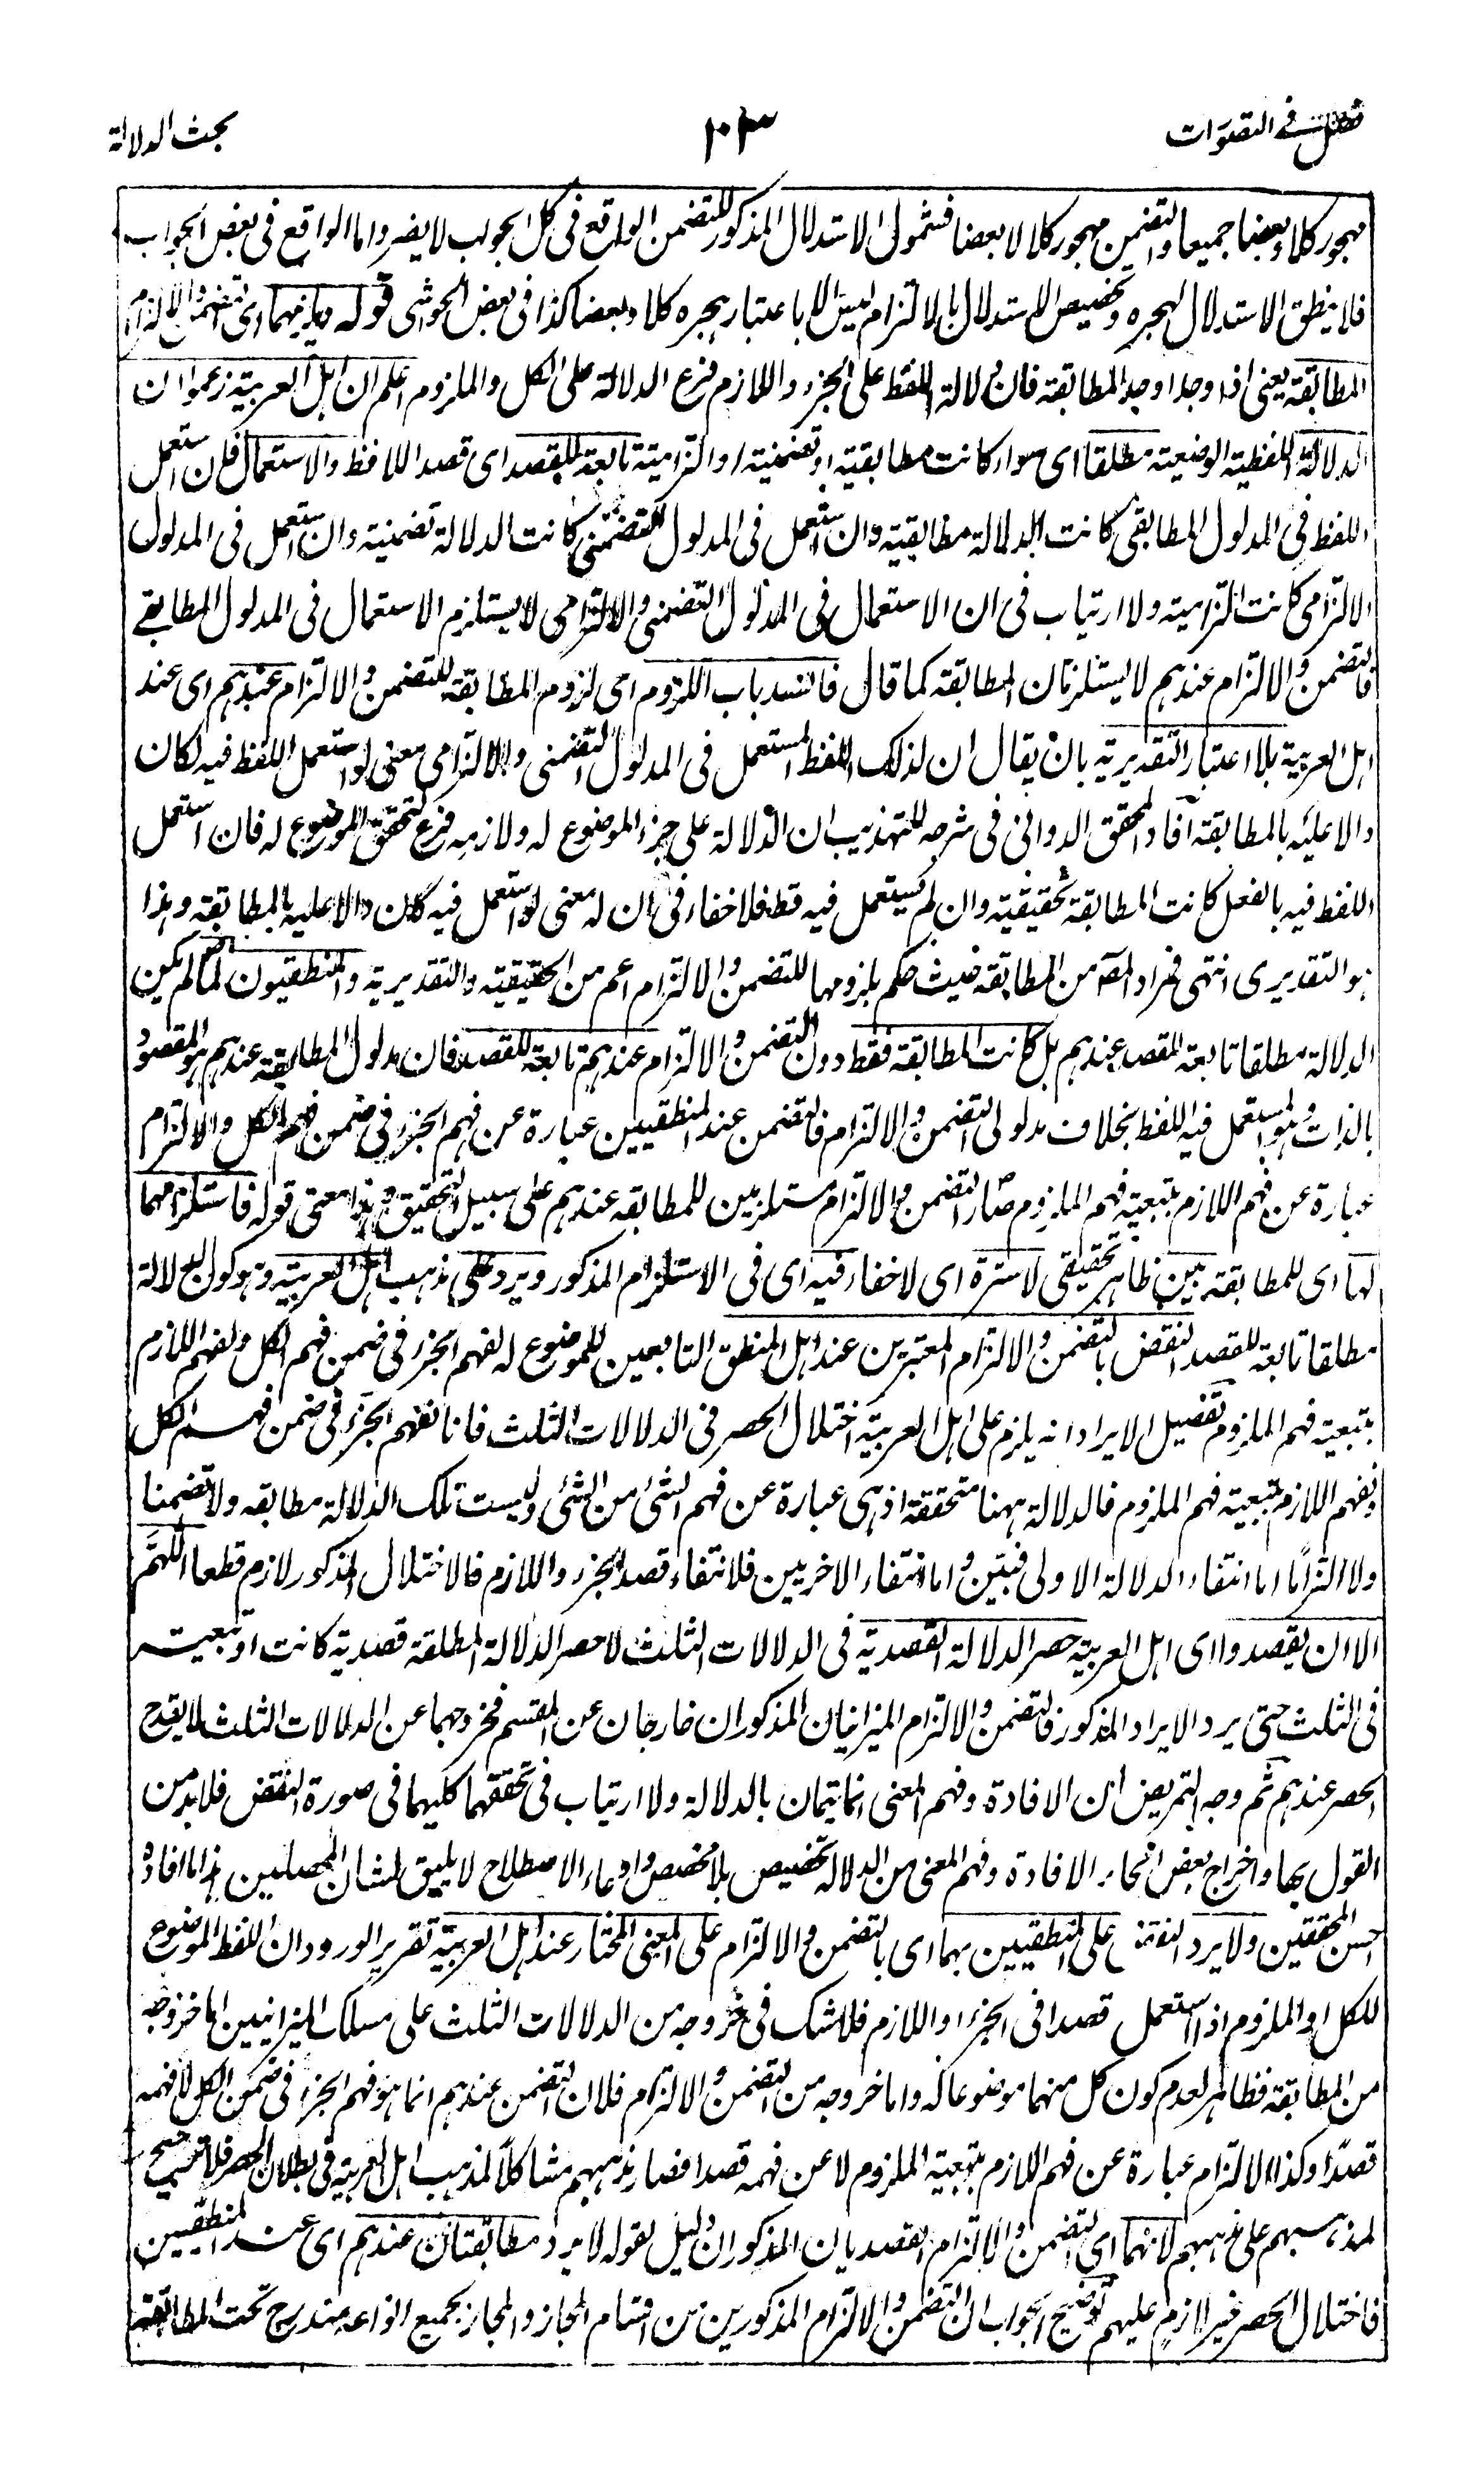 فصل فى التصورات
١٠٣
بحث الدلالة
مهجور كلا وبعضا جميعا والتضمن مهجور كلا لا بعضا فشمول الاستدلال المذكور للتضمن الواقع فى كل الجواب لا يضر واما الواقع فى بعض الجواب
فلا ينطق الاستدلال لهجره وتخصيص الاستدلال بالالتزام ليس الا باعتبار هجره كلا وبعضا كذا فى بعض الحواشى قوله ويلزمهما اى التضمن والالتزام
المطابقة يعنى اذا وجدا وجد المطابقة فان دلالة اللفظ على الجزء واللازم فرع الدلالة على الكل والملزوم اعلم ان اهل العربية زعموا ان
الدلالة اللفظية الوضعية مطلقا اى سواء كانت مطابقية او تضمنية او التزامية تابعة للقصد اى قصد اللافظ والاستعمال فان استعمل
اللفظ فى المدلول المطابقى كانت الدلالة مطابقية وان استعمل فى المدلول التضمنى كانت الدلالة تضمنية وان استعمل فى المدلول
الالتزامى كانت التزامية ولا ارتياب فى ان الاستعمال فى المدلول التضمنى والالتزامى لا يستلزم الاستعمال فى المدلول المطابقے
فالتضمن والالتزام عندهم لا يستلزمان المطابقة كما قال فانسد باب اللزوم اى لزوم المطابقة للتضمن والالتزام عندهم اى عند
اهل العربية بلا اعتبار التقديرية بان يقال ان لذلك اللفظ المستعمل فى المدلول التضمنى والالتزامى معنى لو استعمل اللفظ فيه لكان
دالا عليه بالمطابقة افاد المحقق الدوانى فى شرحه للتهذيب ان الدلالة على جزء الموضوع له ولازمه فرع تحقق الموضوع له فان استعمل
اللفظ فيه بالفعل كانت المطابقة تحقيقية وان لم يستعمل فيه قط فلا خفاء فى ان له معنى لو استعمل فيه كان دالا عليه بالمطابقة وهذا
هو التقديرى انتهى فمراد المصـ من المطابقة حيث حكم بلزومها للتضمن والالتزام اعم من الحقيقية والتقديرية والمنطقيون لما لم يكن
الدلالة مطلقا تابعة للقصد عندهم بل كانت المطابقة فقط دون التضمن والالتزام عندهم تابعة للقصد فان مدلول المطابقة عندهم هو المقصود
بالذات وهو المستعمل فيه اللفظ بخلاف مدلولى التضمن والالتزام فالتضمن عند المنطقيين عبارة عن فهم الجزء فى ضمن فهم الكل والالتزام
عبارة عن فهم اللازم بتبعية فهم الملزوم صار التضمن والالتزام مستلزمين للمطابقة عندهم على سبيل التحقيق وهذا معنى قوله فاستلزامهما
لها اى للمطابقة بين ظاهر تحقيقى لاسترة اى لا خفاء فيه اى فى الاستلزام المذكور ويرد على مذهب اهل العربية وهو كون الدلالة
مطلقا تابعة للقصد النقض بالتضمن والالتزام المعتبرين عند اهل المنطق التابعين للموضوع له لفهم الجزء فى ضمن فهم الكل ولفهم اللازم
بتبعية فهم الملزوم تفصيل الايراد انه يلزم على اهل العربية اختلال الحصر فى الدلالات الثلث فانا نفهم الجزء فى ضمن فهم الكل
ونفهم اللازم بتبعية فهم الملزوم فالدلالة ههنا متحققة اذ هى عبارة عن فهم الشئ من الشئ وليست تلك الدلالة مطابقه ولا تضمنا
ولا التزاما اما انتفاء الدلالة الاولى فبيّن واما انتفاء الاخريين فلانتفاء قصد الجزء واللازم فالاختلال المذكور لازم قطعا اللهمّ
الا ان يقصدوا اى اهل العربية حصر الدلالة القصدية فى الدلالات الثلث لا حصر الدلالة المطلقة قصدية كانت او تبعية
فى الثلث حتى يرد الايراد المذكور فالتضمن والالتزام الميزانيان المذكوران خارجان عن المقسم فخروجهما عن الدلالات الثلث لا يقدح
الحصر عندهم ثم وجه التمريض ان الافادة وفهم المعنى انما يتمان بالدلالة ولا ارتياب فى تحققهما كليهما فى صورة النقض فلا بد من
القول بها واخراج بعض انحاء الافادة وفهم المعنى من الدلالة تخصيص بلا مخصص وادعاء الاصطلاح لا يليق لشان المحصلين هذا ما افاده
احسن المحققين ولا يرد النقض على المنطقيين بهما اى بالتضمن والالتزام على المعنى المختار عند اهل العربية تقرير الورود ان اللفظ الموضوع
للكل او الملزوم اذا استعمل قصدا فى الجزء او اللازم فلا شك فى خروجه من الدلالات الثلث على مسلك الميزانيين اما خروجه
من المطابقة فظاهر لعدم كون كل منهما موضوعا له واما خروجه من التضمن والالتزام فلان التضمن عندهم انما هو فهم الجزء فى ضمن الكل لا فهمه
قصدا وكذا الالتزام عبارة عن فهم اللازم بتبعية الملزوم لا عن فهمه قصدا فصار مذهبهم مشاكلا لمذهب اهل العربية فى بطلان الحصر فلا ترجيح
لمذهبهم على مذهبهم لانهما اى التضمن والالتزام القصديان المذكوران دليل لقوله لا يرد مطابقتان عندهم اى عند المنطقيين
فاختلال الحصر غير لازم عليهم توضيح الجواب ان التضمن والالتزام المذكورين من اقسام المجاز والمجاز بجميع انواعه مندرج تحت المطابقة